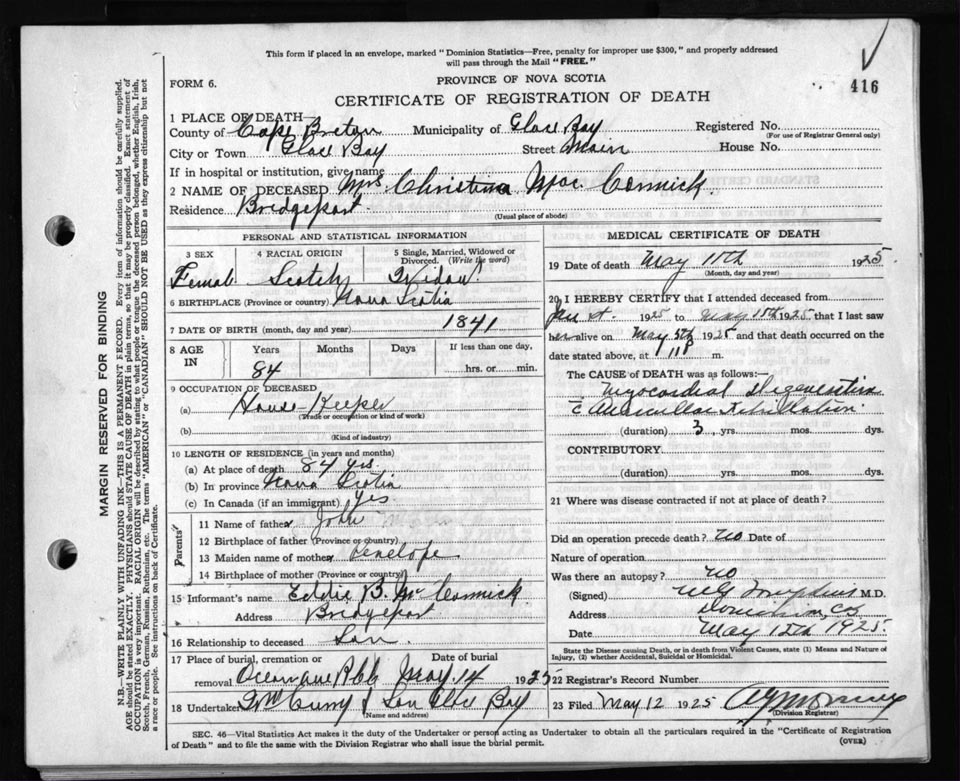 This form if placed in an envelope, marked "Dominion Statistics—Free, penalty for improper use $300," and properly addressed
will pass through the Mail "FREE."
416
FORM 6.
PROVINCE OF NOVA SCOTIA
CERTIFICATE OF REGISTRATION OF DEATH
1 PLACE OF DEATH—
County of Cape Breton Municipality of Glace Bay Registered No.
(For use of Registrar General only)
City or Town Glace Bay Street Main House No.
If in hospital or institution, give name
2 NAME OF DECEASED Mrs. Christina Mac Cormick.
Residence Bridgeport
(Usual place of abode)
PERSONAL AND STATISTICAL INFORMATION
3 SEX 4 RACIAL ORIGIN 5 Single, Married, Widowed or Divorced. (Write the word)
Female Scotch Widow
6 BIRTHPLACE (Province or country) Nova Scotia
7 DATE OF BIRTH (month, day and year) 1841
8 AGE IN Years Months Days If less than one day,
84 hrs. or min.
9 OCCUPATION OF DECEASED
(a) House Keeper
(Trade or occupation or kind of work)
(b)
(Kind of industry)
10 LENGTH OF RESIDENCE (in years and months)
(a) At place of death 84 yrs.
(b) In province Nova Scotia
(c) In Canada (if an immigrant) yes
Parents
11 Name of father John
12 Birthplace of father (Province or country)
13 Maiden name of mother Penelope
14 Birthplace of mother (Province or country)
15 Informant's name Eddie B. McCormick
Address Bridgeport
16 Relationship to deceased Son.
17 Place of burial, cremation or removal Date of burial
May 14 1925
18 Undertaker McCurry & Son Glace Bay
(Name and address)
MEDICAL CERTIFICATE OF DEATH
19 Date of death May 11th 1925
(Month, day and year)
20 I HEREBY CERTIFY that I attended deceased from
1925 to May 1925 that I last saw
her alive on May 5th 1925 and that death occurred on the
date stated above, at m.
The CAUSE OF DEATH was as follows:—
Myocardial Degeneration
c Auricular Fibrillation
(duration) 3 yrs. mos. dys.
CONTRIBUTORY
(duration) yrs. mos. dys.
21 Where was disease contracted if not at place of death?
Did an operation precede death? No Date of
Nature of operation
Was there an autopsy? No
(Signed) M.D.
Address Dominion, C.B.
Date May 12th 1925
State the Disease causing Death, or in death from Violent Causes, state (1) Means and Nature of
Injury, (2) whether Accidental, Suicidal or Homicidal.
22 Registrar's Record Number
23 Filed May 12 1925
(Division Registrar)
SEC. 46—Vital Statistics Act makes it the duty of the Undertaker or person acting as Undertaker to obtain all the particulars required in the "Certificate of Registration
of Death" and to file the same with the Division Registrar who shall issue the burial permit.
(OVER)
MARGIN RESERVED FOR BINDING
N.B.—WRITE PLAINLY WITH UNFADING INK—THIS IS A PERMANENT RECORD. Every item of information should be carefully supplied.
AGE should be stated EXACTLY. PHYSICIANS should STATE CAUSE OF DEATH in plain terms, so that it may be properly classified. Exact statement of
OCCUPATION is very important. RACIAL ORIGIN will be described by stating to what people or tongue the deceased person belonged, whether English, Irish,
Scotch, French, German, Russian, Ruthenian, etc. The terms "AMERICAN" or "CANADIAN" SHOULD NOT BE USED as they express citizenship but not
a race or people. See instructions on back of Certificate.